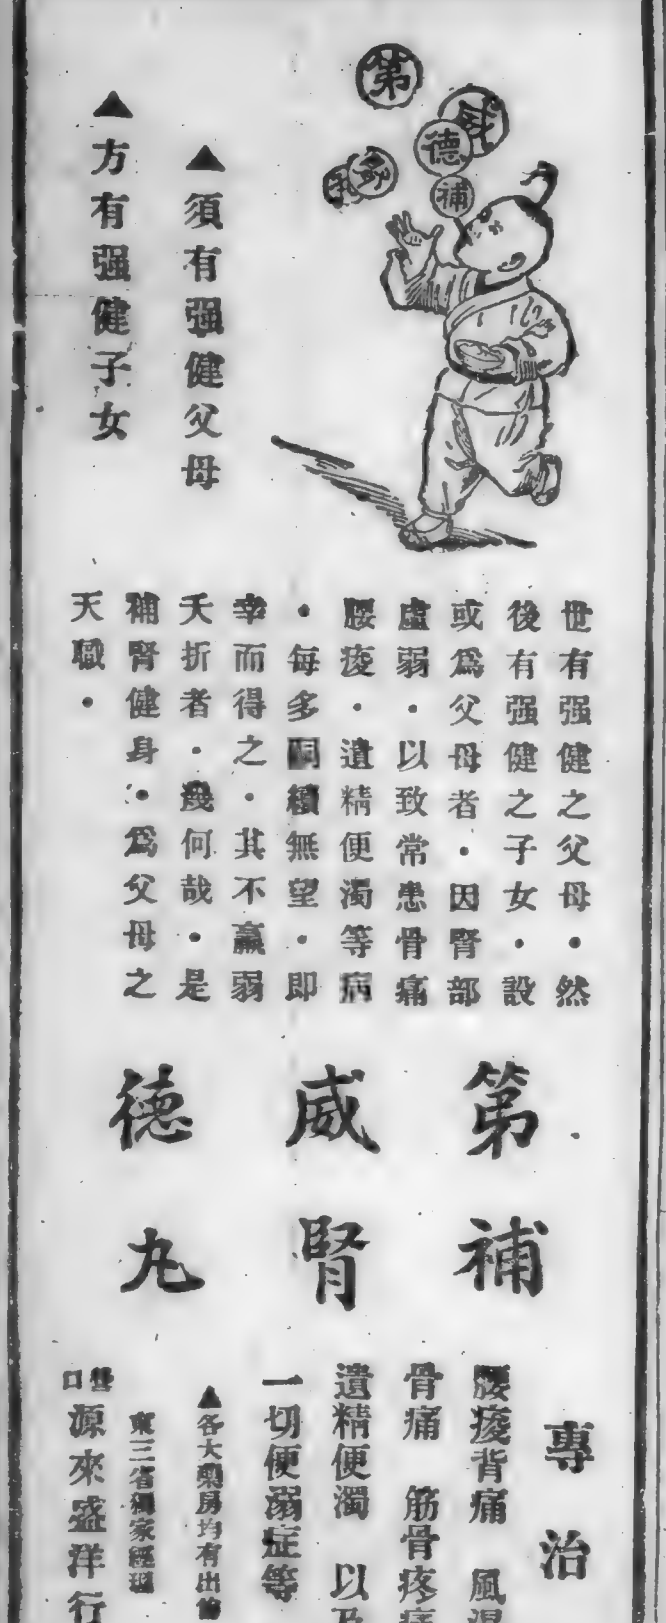 第
威
德
補
▲須有强健父母
▲方有强健子女
世有强健之父母・然
後有强健之子女・設
或爲父母者・因腎部
虛弱・以致常患骨痛
腰痠・遺精便濁等病
・每多嗣續無望・即
幸而得之・其不羸弱
夭折者・幾何哉・是
補腎健身・爲父母之
天職・
第威德
補腎丸
專治
腰痠背痛 風濕
骨痛 筋骨疼痛
遺精便濁 以及
一切便溺症等
▲各大藥房均有出售
東三省獨家經理
營口
源來盛洋行